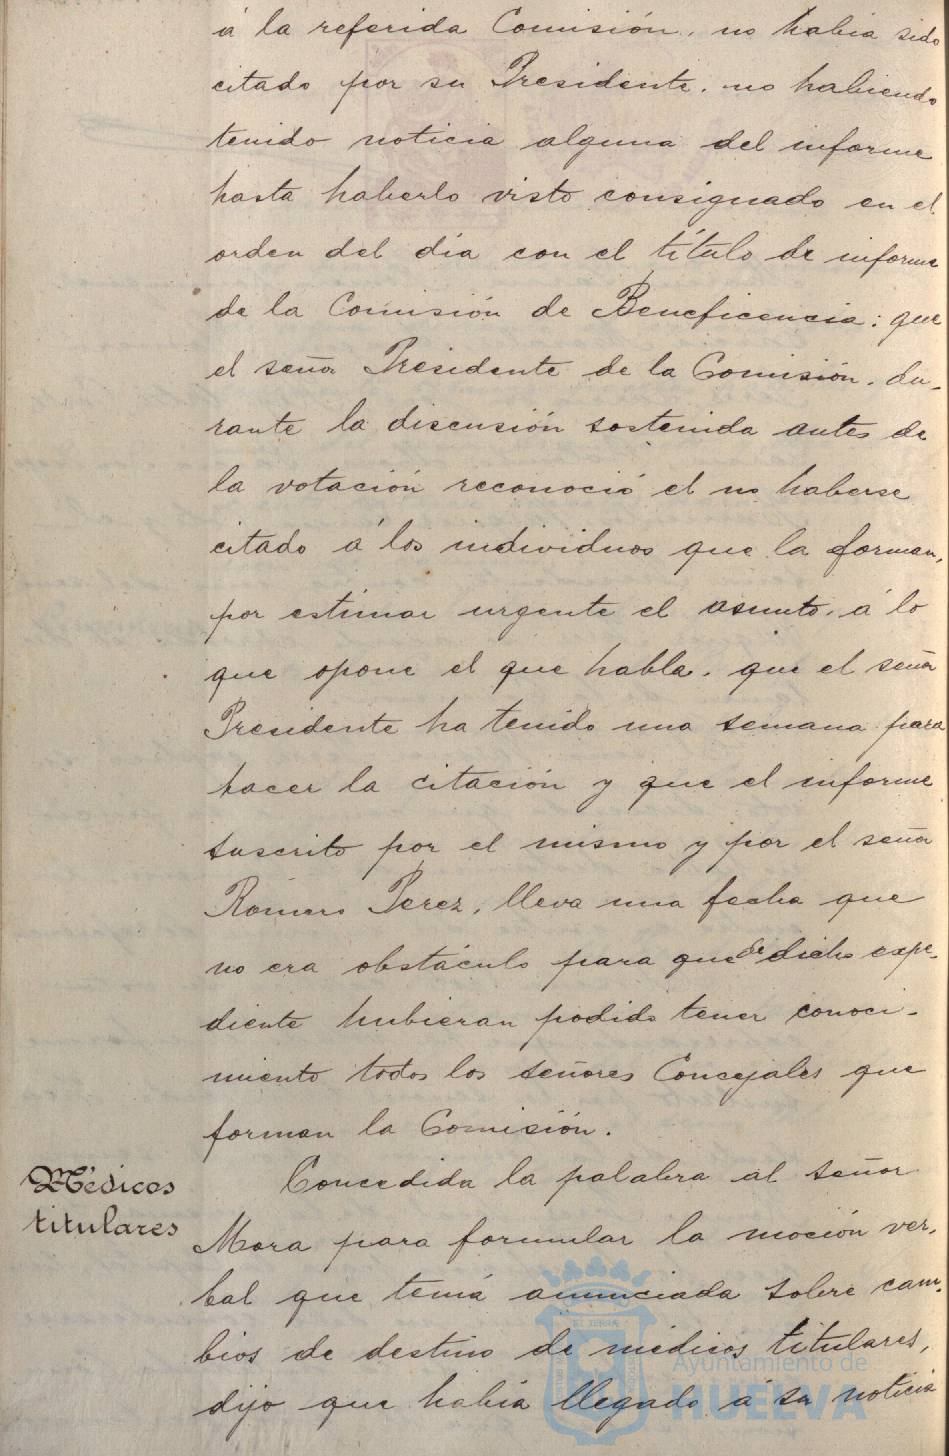 á la referida Comisión, no había sido
citado por su Presidente, no habiendo
tenido noticia alguna del informe
hasta haberlo visto consignado en el
orden del día con el título de informe
de la Comisión de Beneficencia; que
el señor Presidente de la Comisión, du-
rante la discusión sostenida antes de
la votación reconoció el no haberse
citado á los individuos que la forman,
por estimar urgente el asunto, á lo
que opone el que habla, que el señor
Presidente ha tenido una semana para
hacer la citación y que el informe
suscrito por el mismo y por el señor
Romero Perez, lleva una fecha que
no era obstáculo para que de dicho expe-
diente hubieran podido tener conoci-
miento todos los señores Concejales que
forman la Comisión.
Médicos
titulares
Concedida la palabra al señor
Mora para formular la moción ver-
bal que tenía anunciada sobre cam-
bios de destino de médicos titulares,
dijo que había llegado á su noticia
Ayuntamiento de
HUELVA